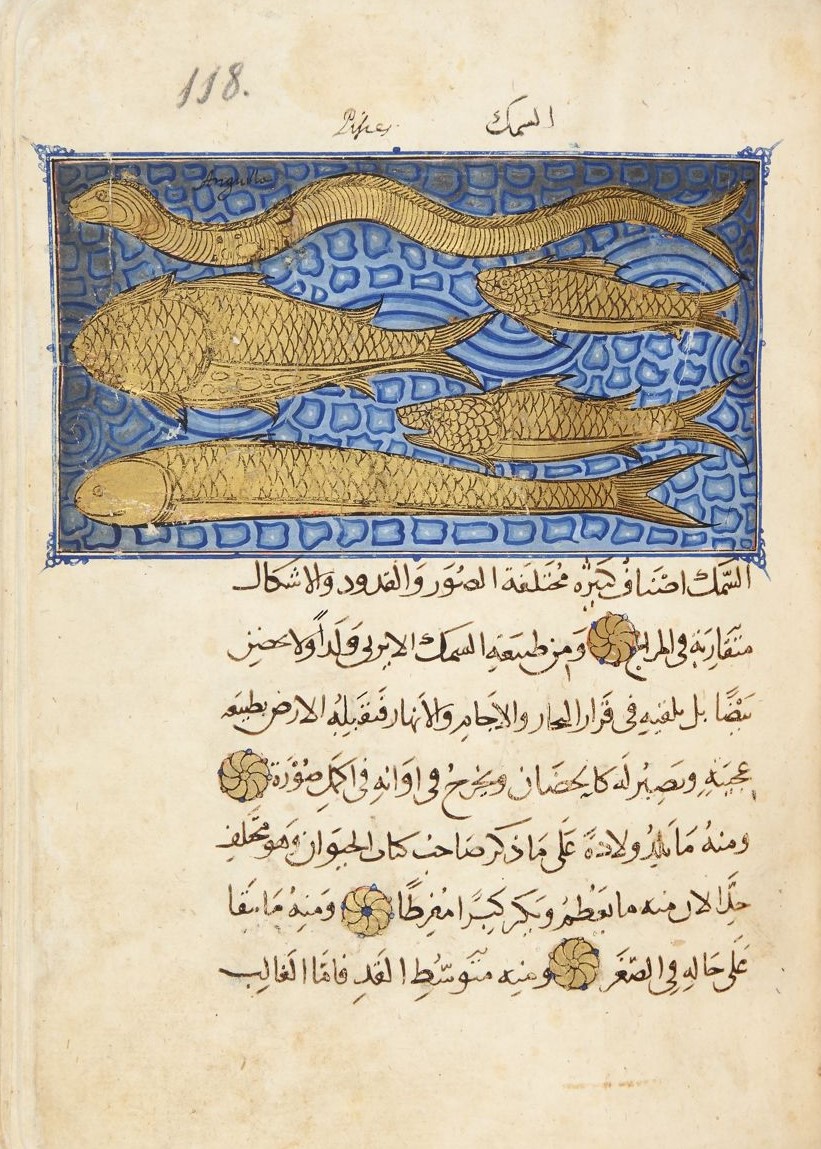 118.
Pisces. السمك
Anguilla
السّمك اصناف كثيرة مختلفة الصُوَر وَالقدود والاشكال
متقاربة فى المزاج وَمن طبيعة السمك الا يربى وَلَداً ولا يحضن
بَيْضًا بل يلقيه فى قرار البحار والاجام والانهار فتقبله الارض بطبيعة
عجيبة وتصير له كالحضان ويخرج فى اوانه فى اكمل صُوْرَة
ومنهُ مَا يلدُ ولادةً عَلَى مَا ذكر صَاحب كتاب الحيَوان وَهو مختلف
جدًّا لان منه ما يعظمُ ويكبر كبرًا مفرطًا وَمنِهُ مَا يبقا
عَلَى حَالِهِ فى الصّغَر ومنِه متوَسّط القَدِ فامّا الغالب